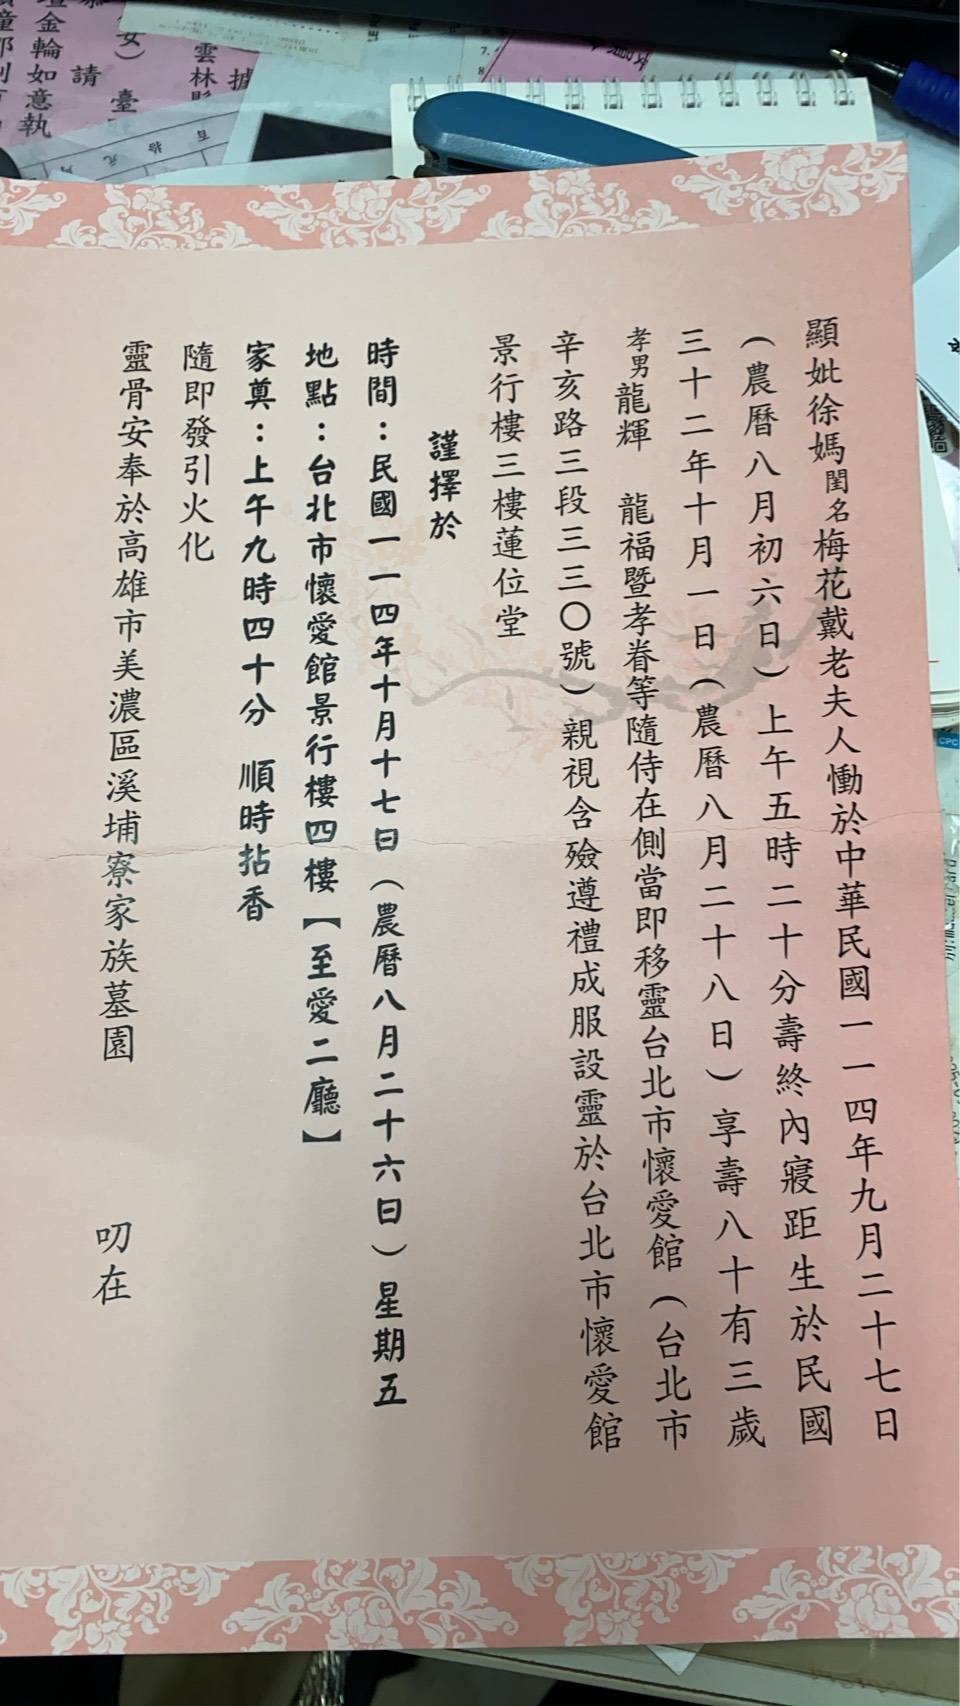 顯妣徐媽閨名梅花戴老夫人慟於中華民國一一四年九月二十七日
（農曆八月初六日）上午五時二十分壽終內寢距生於民國
三十二年十月一日（農曆八月二十八日）享壽八十有三歲
孝男龍輝 龍福暨孝眷等隨侍在側當即移靈台北市懷愛館（台北市
辛亥路三段三三〇號）親視含殮遵禮成服設靈於台北市懷愛館
景行樓三樓蓮位堂
謹擇於
時間：民國一一四年十月十七日（農曆八月二十六日）星期五
地點：台北市懷愛館景行樓四樓【至愛二廳】
家奠：上午九時四十分 順時拈香
隨即發引火化
靈骨安奉於高雄市美濃區溪埔寮家族墓園 叨在
據
雲林
請
金輪如意執
百 拾 元
CPC